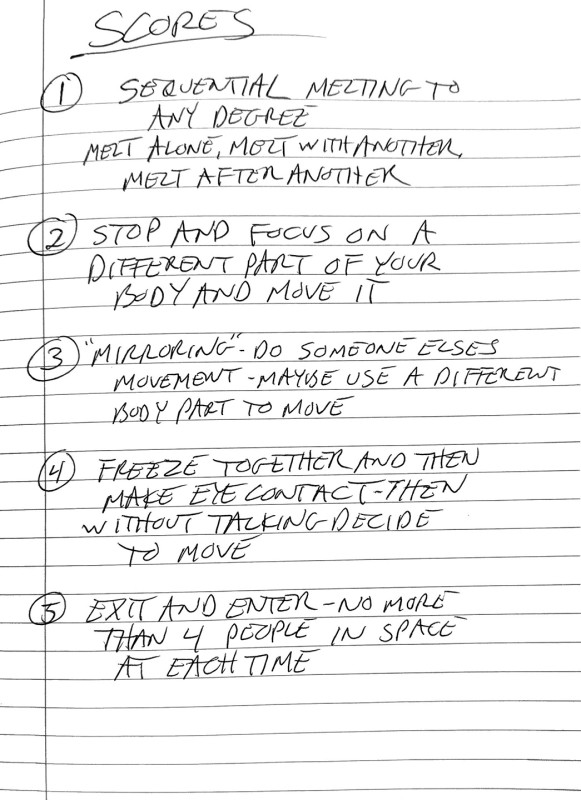 SCORES
① SEQUENTIAL MELTING TO
ANY DEGREE
MELT ALONE, MELT WITH ANOTHER,
MELT AFTER ANOTHER
② STOP AND FOCUS ON A
DIFFERENT PART OF YOUR
BODY AND MOVE IT
③ "MIRRORING" - DO SOMEONE ELSES
MOVEMENT - MAYBE USE A DIFFERENT
BODY PART TO MOVE
④ FREEZE TOGETHER AND THEN
MAKE EYE CONTACT - THEN
WITHOUT TALKING DECIDE
TO MOVE
⑤ EXIT AND ENTER - NO MORE
THAN 4 PEOPLE IN SPACE
AT EACH TIME